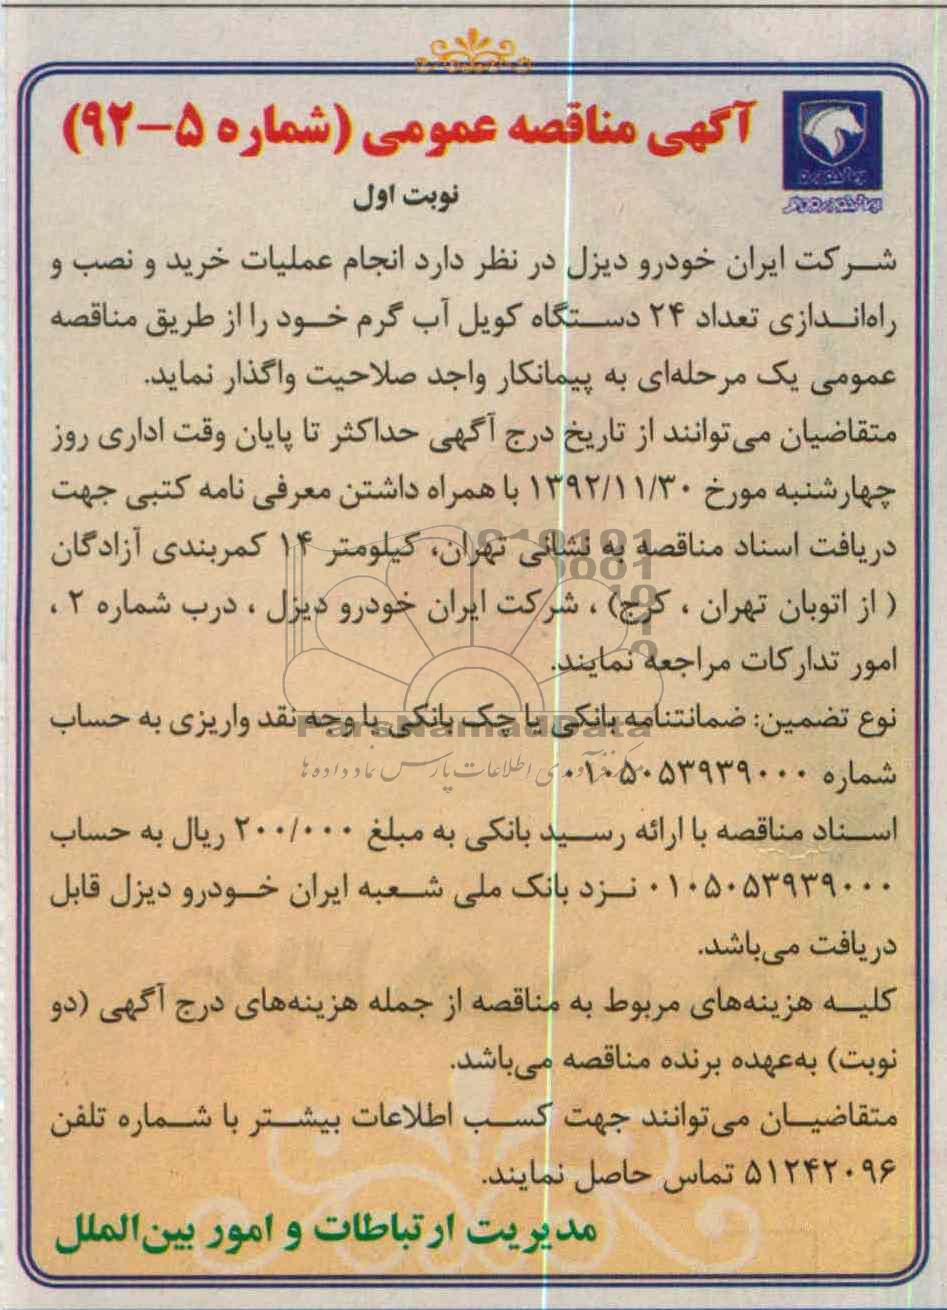 آگهی مناقصه عمومی (شماره ۵-۹۲)
نوبت اول
شرکت ایران خودرو دیزل در نظر دارد انجام عملیات خرید و نصب و
راه‌اندازی تعداد ۲۴ دستگاه کویل آب گرم خود را از طریق مناقصه
عمومی یک مرحله‌ای به پیمانکار واجد صلاحیت واگذار نماید.
متقاضیان می‌توانند از تاریخ درج آگهی حداکثر تا پایان وقت اداری روز
چهارشنبه مورخ ۱۳۹۲/۱۱/۳۰ با همراه داشتن معرفی نامه کتبی جهت
دریافت اسناد مناقصه به نشانی تهران، کیلومتر ۱۴ کمربندی آزادگان
( از اتوبان تهران ، کرج) ، شرکت ایران خودرو دیزل ، درب شماره ۲ ،
امور تدارکات مراجعه نمایند.
نوع تضمین: ضمانتنامه بانکی یا چک بانکی یا وجه نقد واریزی به حساب
ParsNamadData
شماره ۰۱۰۵۰۵۳۹۳۹۰۰۰
مرکز فرآوری اطلاعات پارس نماد داده ها
اسناد مناقصه با ارائه رسید بانکی به مبلغ ۲۰۰/۰۰۰ ریال به حساب
۰۱۰۵۰۵۳۹۳۹۰۰۰ نزد بانک ملی شعبه ایران خودرو دیزل قابل
دریافت می‌باشد.
کلیه هزینه‌های مربوط به مناقصه از جمله هزینه‌های درج آگهی (دو
نوبت) به‌عهده برنده مناقصه می‌باشد.
متقاضیان می‌توانند جهت کسب اطلاعات بیشتر با شماره تلفن
۵۱۲۴۲۰۹۶ تماس حاصل نمایند.
مدیریت ارتباطات و امور بین‌الملل